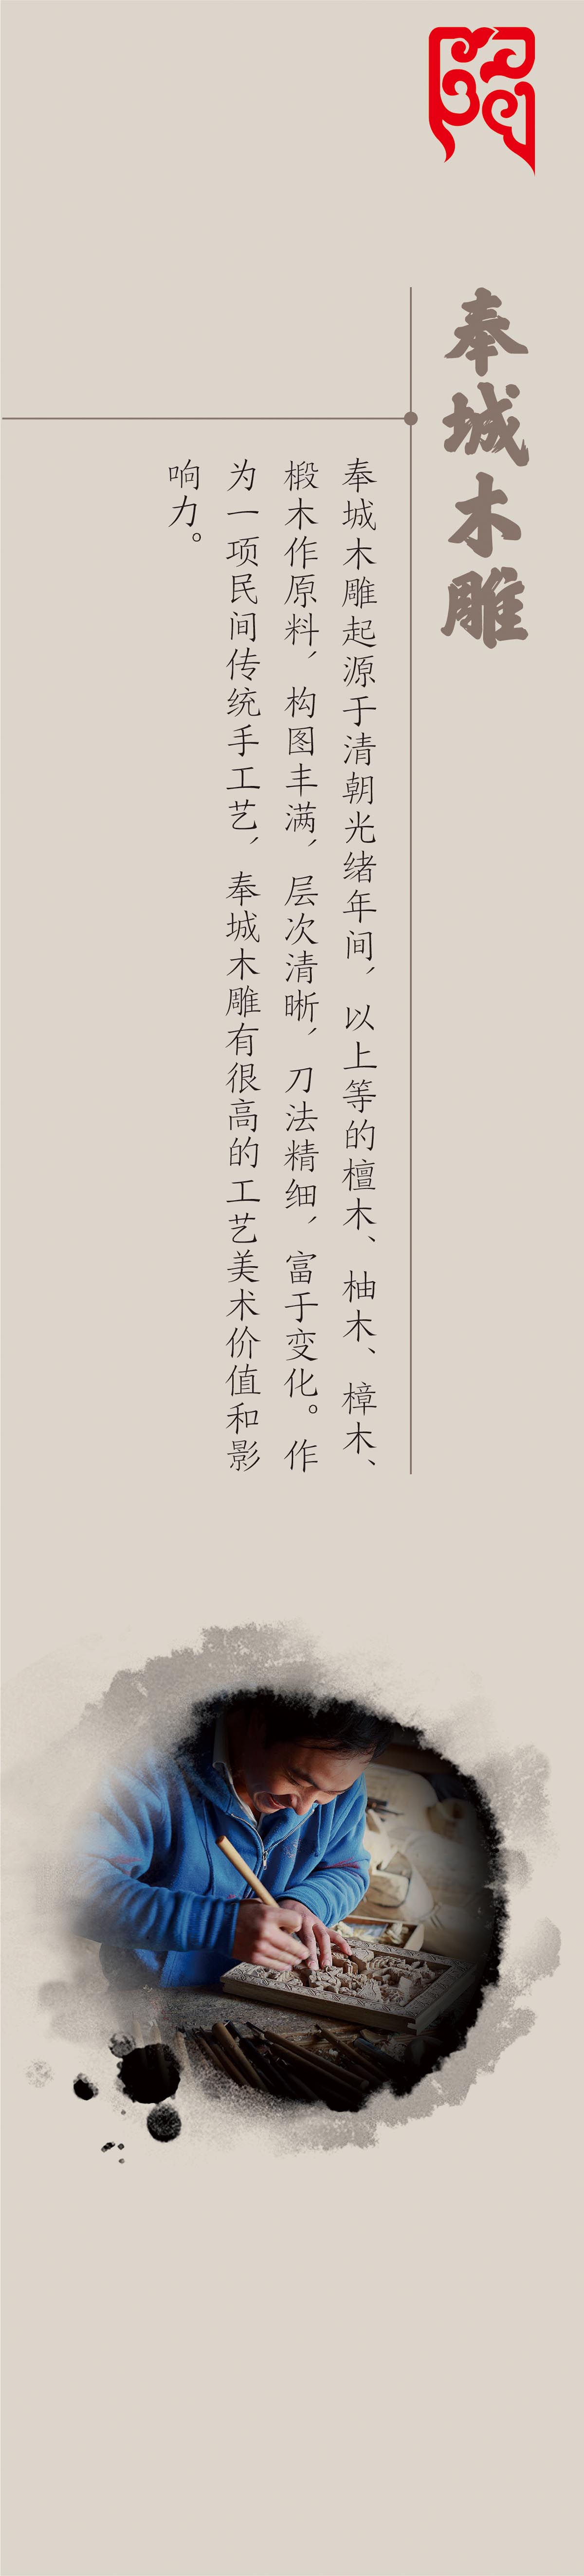 奉城木雕
奉城木雕起源于清朝光绪年间，以上等的檀木、柚木、樟木、
椴木作原料，构图丰满，层次清晰，刀法精细，富于变化。作
为一项民间传统手工艺，奉城木雕有很高的工艺美术价值和影
响力。